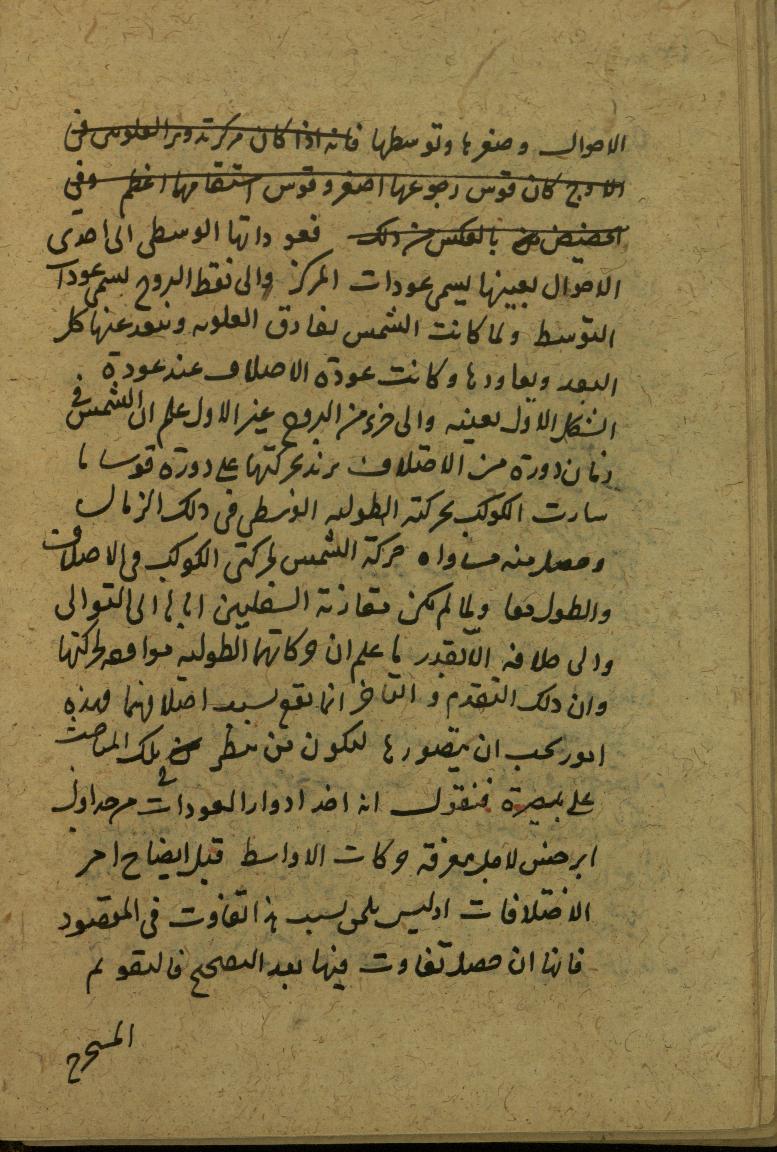 الاحوال وصغرها وتوسطها فانه اذا كان مركز تدوير العلويين في
الاوج كان قوس رجوعها اصغر وقوس استقامها اعظم وفي
الحضيض بالعكس من ذلك فعوداتها الوسطى الى احدى
الاحوال بعينها يسمى عودات المركز والى نقط البروج يسمى عودات
التوسط ولما كانت الشمس يفارق العلويه ويبعد عنها كل
البعد ويعاودها وكانت عودة الاختلاف عند عودة
الشكل الاول بعينه والى جزء من البروج غير الاول علم ان الشمس في
زمان دورة من الاختلاف يزيد بحركتها على دورة قوسا ما
سارت الكوكب بحركته الطوليه الوسطى في ذلك الزمان
وحصل منه مساواه حركة الشمس لحركتى الكوكب في الاختلاف
والطول معا ولما لم يكن مقارنة السفليين اياها الى التوالى
والى خلافه الا بقدر ما علم ان حركاتهما الطوليه موافقه لحركتها
وان ذلك التقدم و التاخر انما يقع بسبب اختلافهما وهذه
امور يجب ان يتصورها ليكون من ينظر في تلك المباحث
على بصيرة فنقول انه اخذ ادوار العودات من جداول
ابرخس لاجل معرفة حركات الاواسط قبل ايضاح امر
الاختلافات اذ ليس يلحق بسبب هذا تفاوت في المقصود
فانها ان حصل تفاوت فيها بعد التصحيح فالتقويم
المستخرج